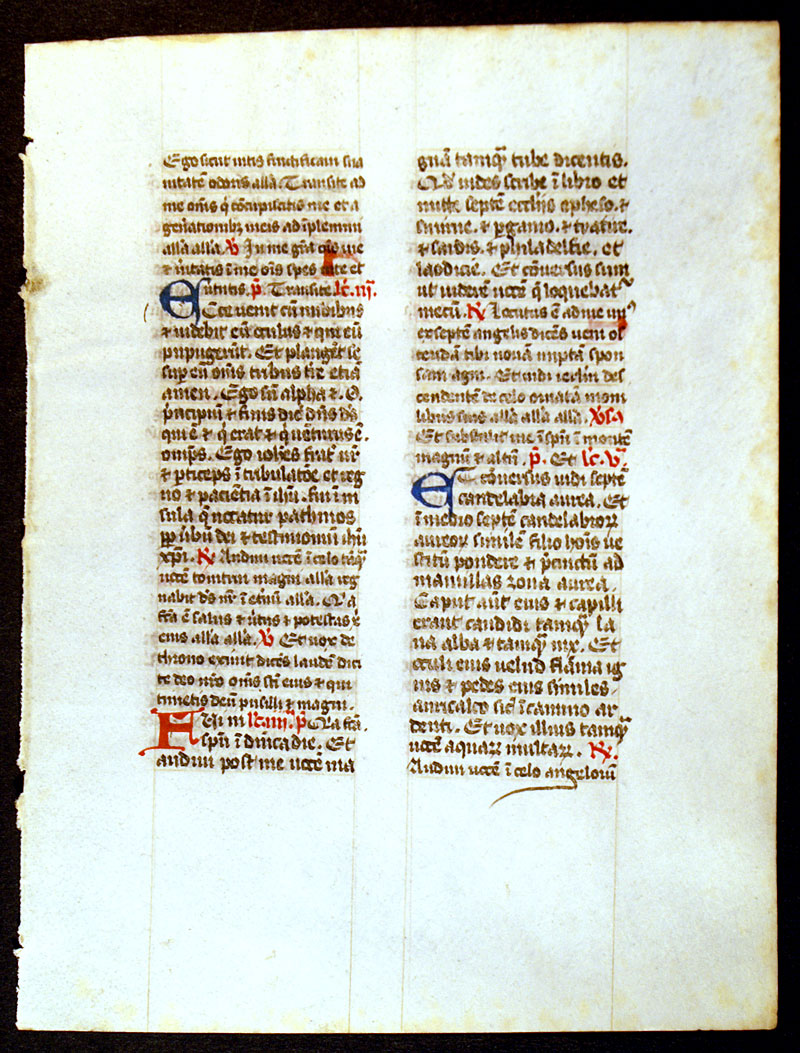 Ego sicut uitis fructificaui sua
uitatē odoris alla. Transite ad
me om̄s q̇ cōcupiscitis me et a
gen̄ationibꝫ meis adīplemini
alla alla. ℣ In me gr̄a ōis uie
& ūitatis ī me ōis spes uite et
uirtutis. p̄. Transite. lc̄. iij.
Ecce uenit cū nubibus
& uidebit eū oculus & qui eū
pupugerūt. Et plangēt se
sup eū om̄s tribus tr̄e etiā
amen. Ego sū alpha & O.
p̄ncipiū & finis dic̄ dn̄s ds̄
qui ē & q̇ erat & q̇ uēturus ē.
omīps. Ego ioh̄es frat̄ ur̄
& p̄ticeps ī tribulatōe et reg
no & paciētia ī ih̄u. fui ī in
sula q̄ uocatur pathmos
pp̄ ūbū dei & testimoniū ih̄u
xp̄i. ℟ Audiui uocē ī celo tāꝙ
uocē tonitrui magni alla reg
nabit ds̄ nr̄ ī et̄nū alla. Q̇a
fc̄a ē salus & ūtus & potestas x̄
eius alla alla. ℣ Et uox de
throno exiuit dicēs laudē dici
te deo nr̄o om̄s sc̄i eius & qui
timetis deū pusilli & magni.
Fui in lc̄. iiij. p̄ Q̇a fc̄a.
spū ī dn̄ica die. Et
audiui post me uocē ma
gnā tamꝙ tube dicentis.
Qd̄ uides scribe ī libro et
mitte septē eccl̄ijs epheso. &
smirne. & p̄gamo. & tyatire.
& sardis. & philadelfie. et
laodicie. Et cōuersus sum
ut uiderē uocē q̄ loquebat̄
mecū. ℟ Locutus ē ad me unꝰ
ex septē angelis dicēs ueni os
tendā tibi nouā nuptā spon
sam agni. Et uidi ierl̄m des
cendentē de celo ornatā moni
libus suis alla alla alla. ℣sa
Et sustulit me ī spū ī montē
magnū & altū. p̄. Et lc̄. v.
Et cōuersus uidi septē
candelabra aurea. Et
ī medio septē candelabroꝝ
aureoꝝ similē filio hoīs ue
stitū podere & p̄cinctū ad
mamillas zona aurea.
Caput aūt eius & capilli
erant candidi tamꝙ la
na alba & tamꝙ nix. Et
oculi eius uelud flāma ig
nis & pedes eius similes
auricalco sic̄ ī camino ar
denti. Et uox illius tamꝙ
uocē aquaꝝ multaꝝ. ℟.
Audiui uocē ī celo angeloꝝ